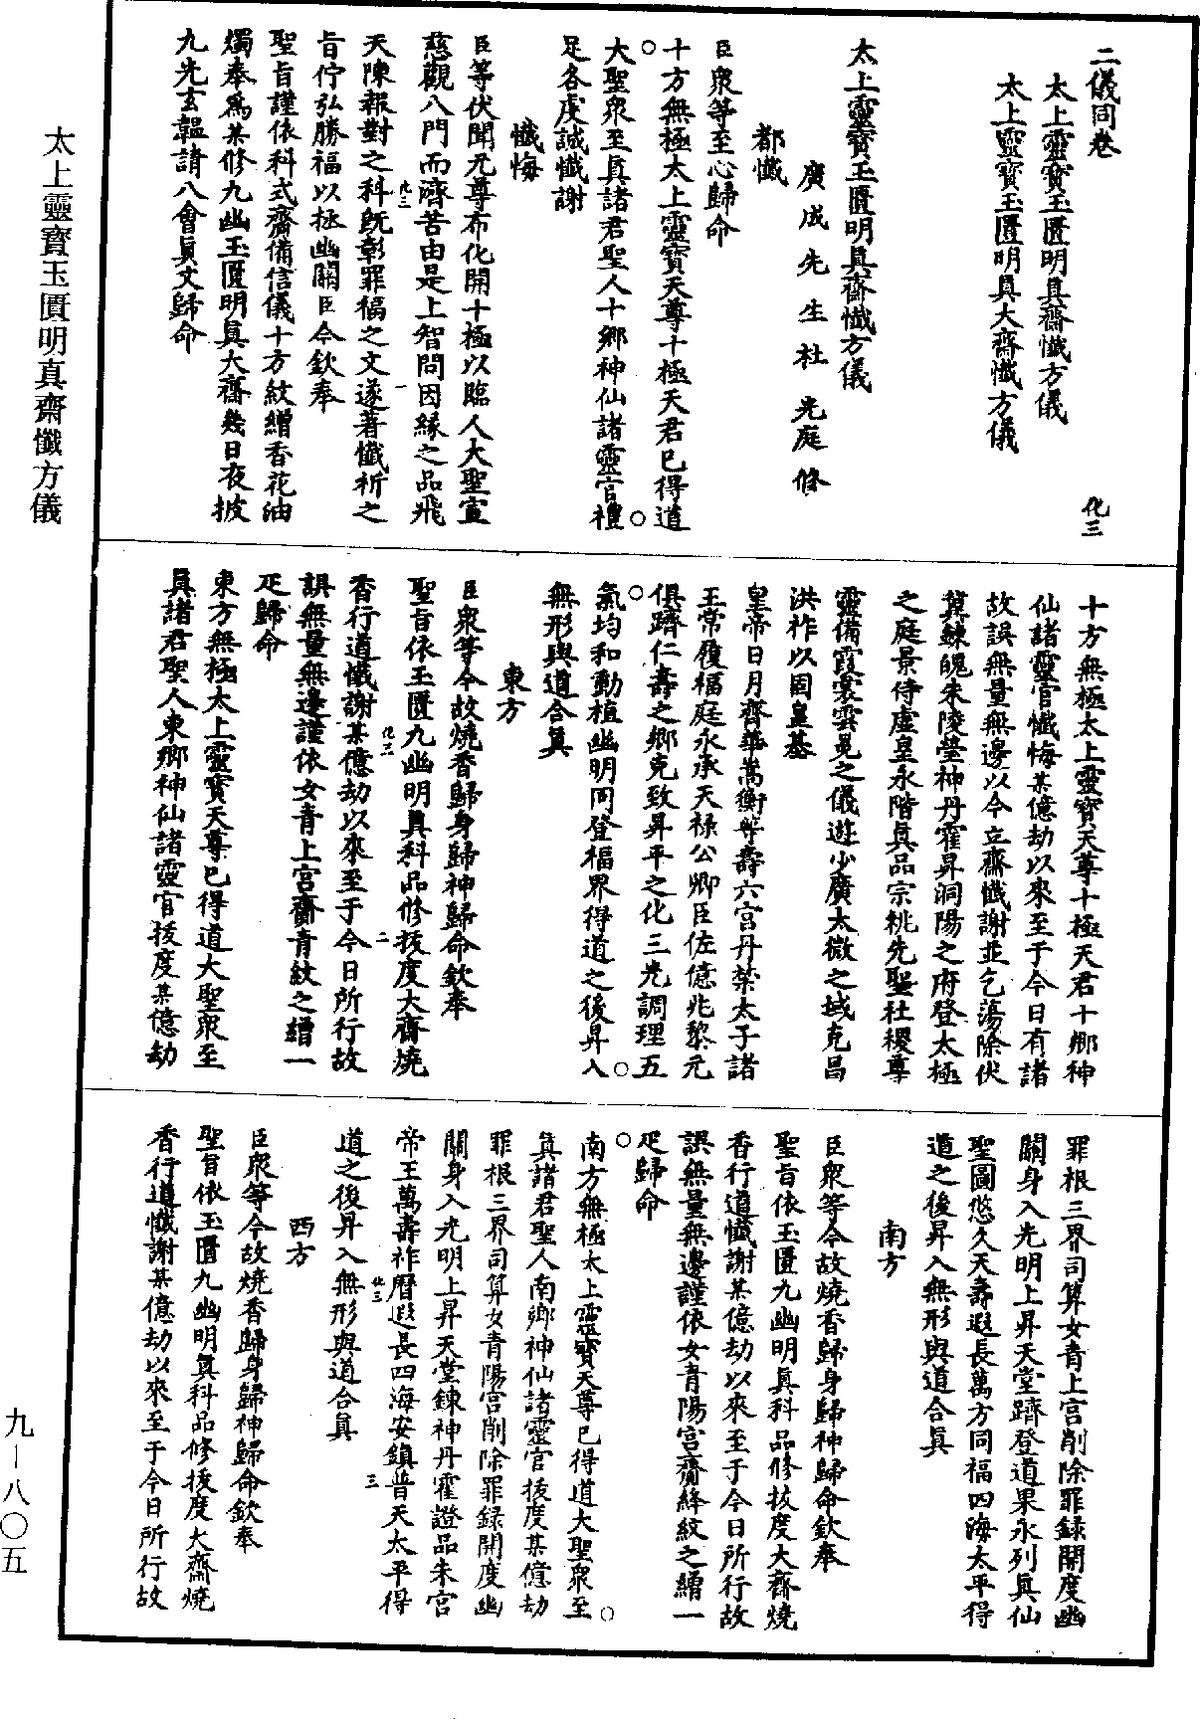 二儀同卷
太上靈寶玉匱明真齋懺方儀
太上靈寶玉匱明真大齋懺方儀
化三
太上靈寶玉匱明真齋懺方儀
廣成先生杜光庭修
都懺
臣衆等至心歸命
十方無極太上靈寶天尊十極天君已得道
大聖衆至真諸君聖人十鄉神仙諸靈官禮
足各虔誠懺謝
懺悔
臣等伏聞元尊布化開十極以臨人大聖宣
慈觀八門而濟苦由是上智問因緣之品飛
天陳報對之科既彰罪福之文遂著懺祈之
旨佇弘勝福以拯幽關臣今欽奉
聖旨謹依科式齋備信儀十方紋繒香花油
燭奉為某修九幽玉匱明真大齋幾日夜披
九光玄韞請八會真文歸命
十方無極太上靈寶天尊十極天君十鄉神
仙諸靈官懺悔某億劫以來至于今日有諸
故誤無量無邊以今立齋懺謝並乞蕩除伏
冀鍊魄朱陵瑩神丹霍昇洞陽之府登太極
之庭景侍虛皇永階真品宗祧先聖社稷尊
靈備霞裳雲冕之儀遊少廣太微之域克昌
洪祚以固皇基
皇帝日月齊華嵩衡等壽六宮丹禁太子諸
王常履福庭永承天祿公卿臣佐億兆黎元
俱躋仁壽之鄉克致昇平之化三光調理五
氣均和動植幽明同登福界得道之後昇入
無形與道合真
東方
臣衆等今故燒香歸身歸神歸命欽奉
聖旨依玉匱九幽明真科品修拔度大齋燒
香行道懺謝某億劫以來至于今日所行故
誤無量無邊謹依女青上宮齎青紋之繒一
疋歸命
東方無極太上靈寶天尊已得道大聖衆至
真諸君聖人東鄉神仙諸靈官拔度某億劫
罪根三界司算女青上宮削除罪錄開度幽
關身入光明上昇天堂躋登道果永列真仙
聖圖悠久天壽遐長萬方同福四海太平得
道之後昇入無形與道合真
南方
臣衆等今故燒香歸身歸神歸命欽奉
聖旨依玉匱九幽明真科品修拔度大齋燒
香行道懺謝某億劫以來至于今日所行故
誤無量無邊謹依女青陽宮齎絳紋之繒一
疋歸命
南方無極太上靈寶天尊已得道大聖衆至
真諸君聖人南鄉神仙諸靈官拔度某億劫
罪根三界司算女青陽宮削除罪錄開度幽
關身入光明上昇天堂鍊神丹霍證品朱宮
帝王萬壽祚曆遐長四海安鎮普天太平得
道之後昇入無形與道合真
西方
臣衆等今故燒香歸身歸神歸命欽奉
聖旨依玉匱九幽明真科品修拔度大齋燒
香行道懺謝某億劫以來至于今日所行故
化三
一
化三
二
化三
三
太上靈寶玉匱明真齋懺方儀
九—八〇五